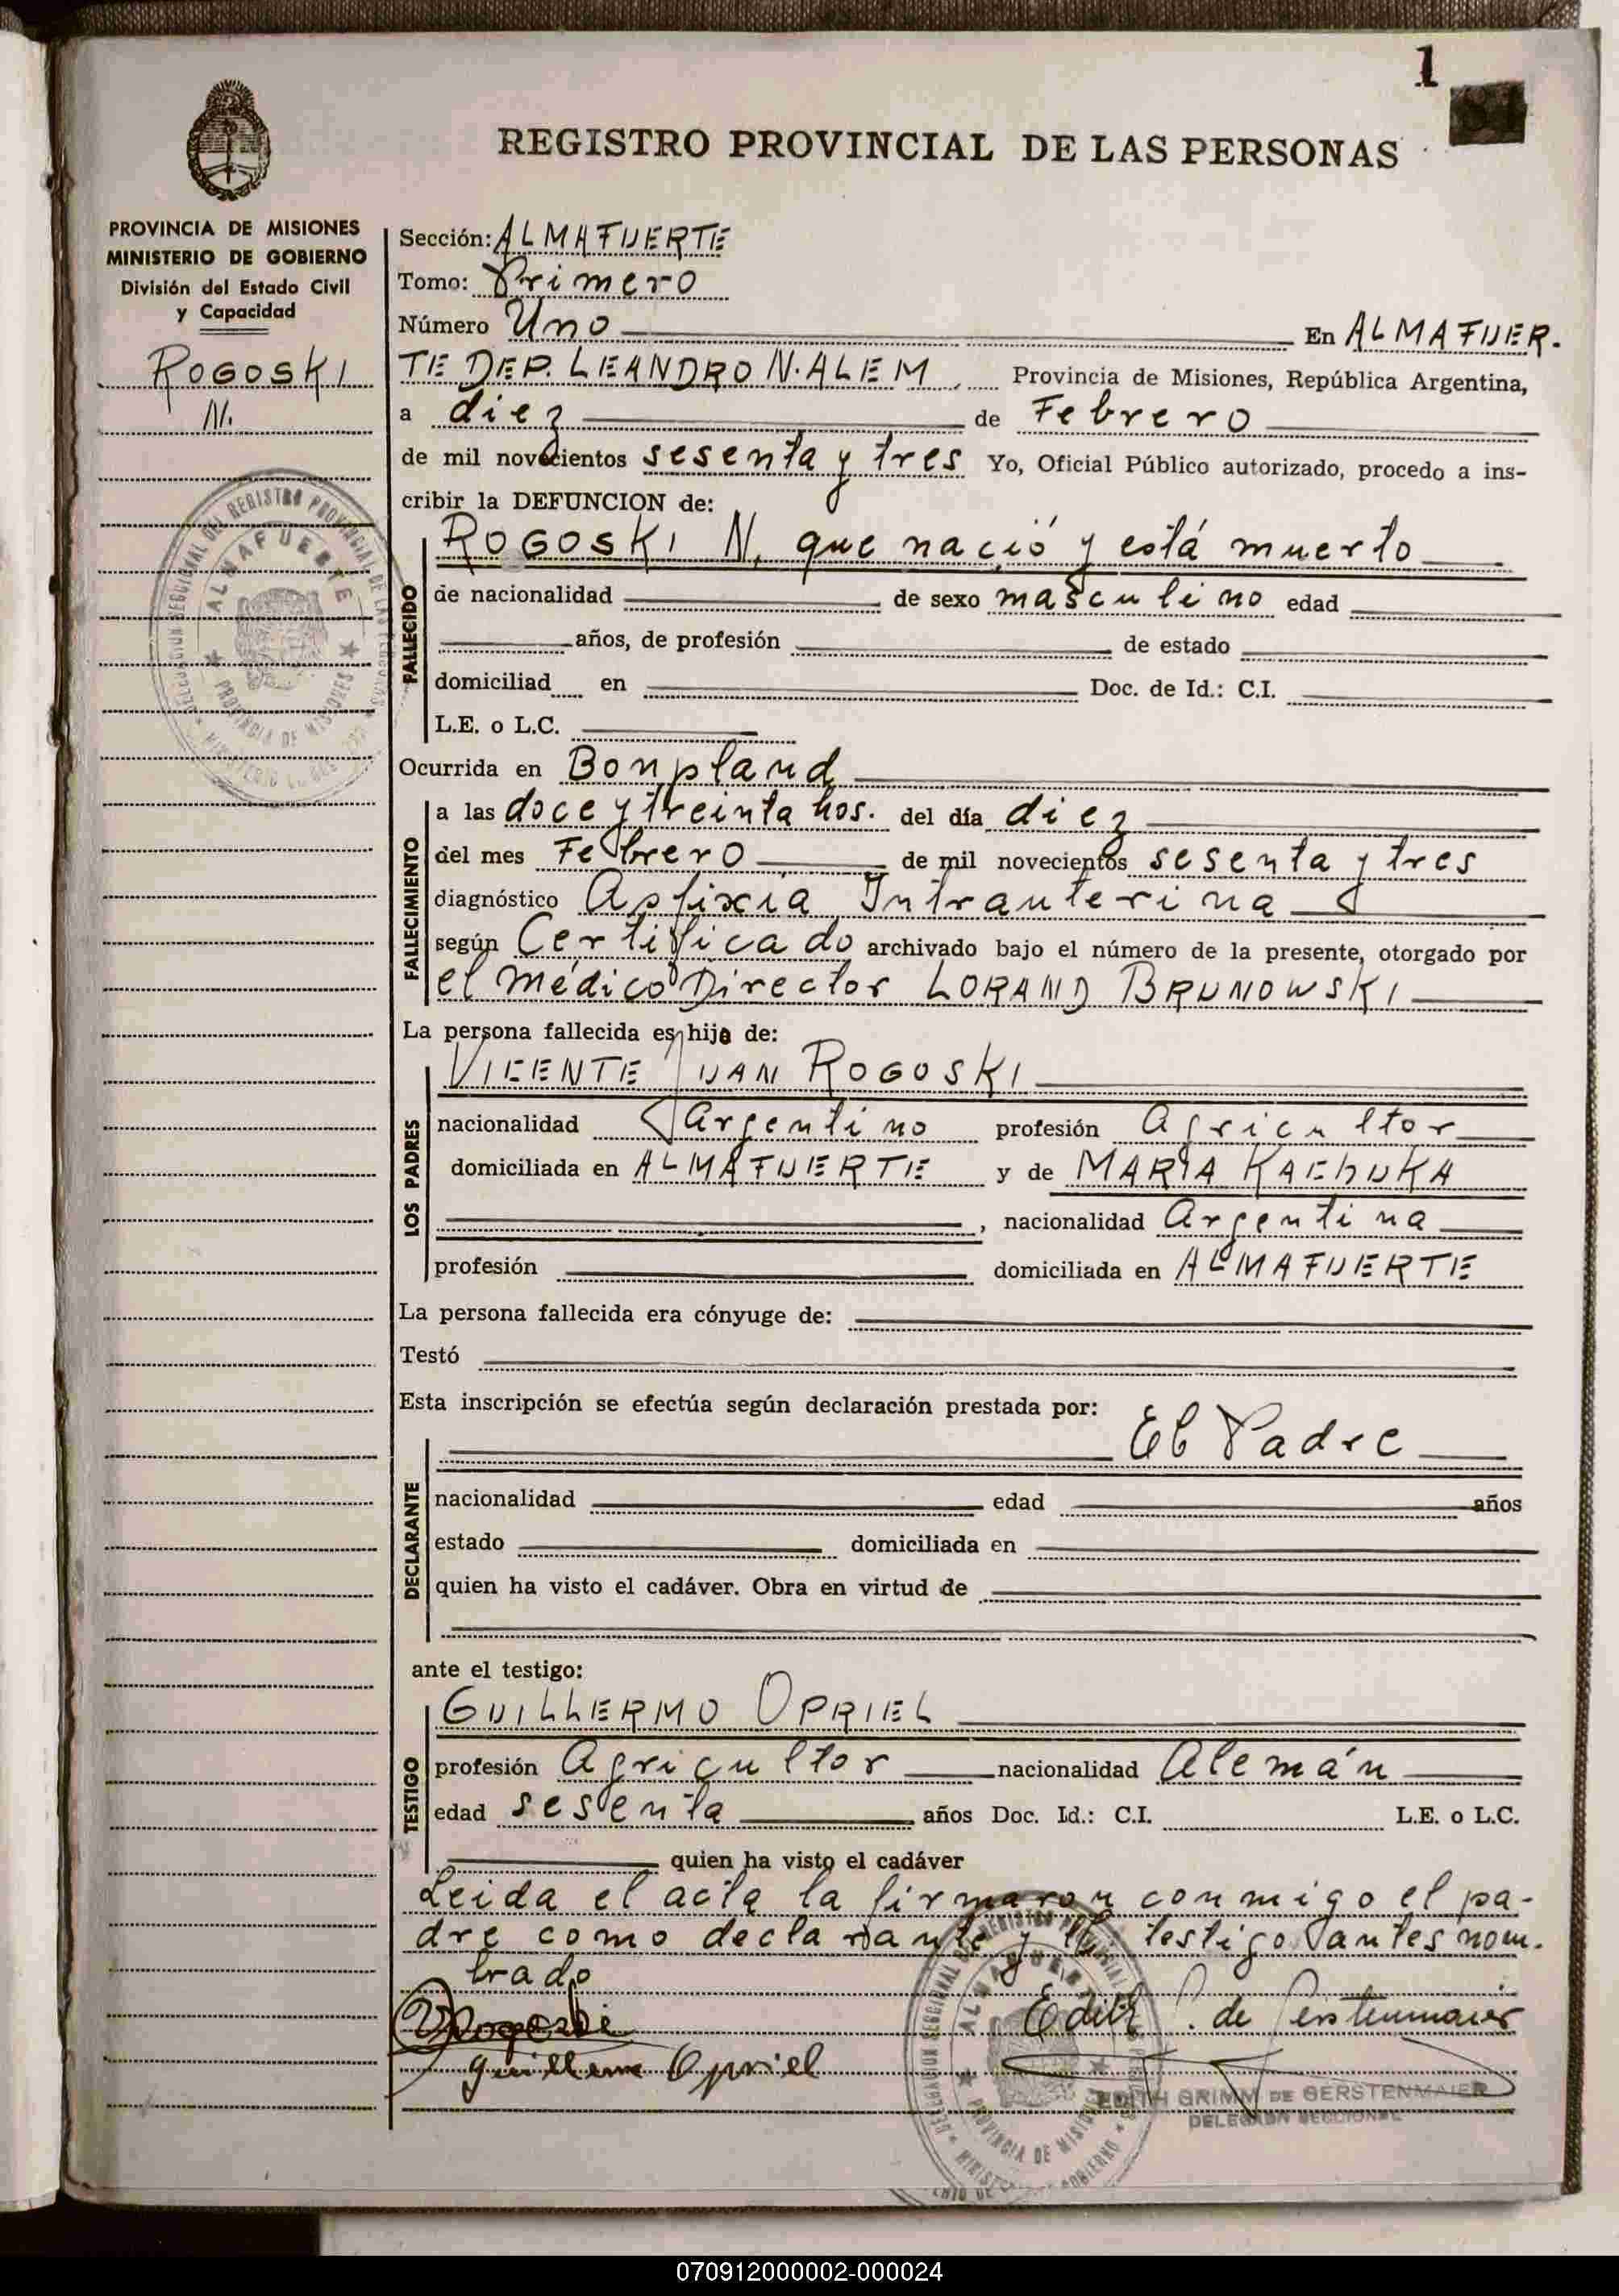 1
REGISTRO PROVINCIAL DE LAS PERSONAS
PROVINCIA DE MISIONES
MINISTERIO DE GOBIERNO
División del Estado Civil
y Capacidad
ROGOSKI
N.
Sección: ALMAFUERTE
Tomo: Primero
Número Uno En ALMAFUER.
TE DEP. LEANDRO N. ALEM, Provincia de Misiones, República Argentina,
a diez de Febrero
de mil novecientos sesenta y tres Yo, Oficial Público autorizado, procedo a ins-
cribir la DEFUNCION de:
FALLECIDO
ROGOSKI N. que nació y está muerto
de nacionalidad de sexo masculino edad
años, de profesión de estado
domiciliad en Doc. de Id.: C.I.
L.E. o L.C.
Ocurrida en Bonpland
FALLECIMIENTO
a las doce y treinta hos. del día diez
del mes Febrero de mil novecientos sesenta y tres
diagnóstico Asfixia Intrauterina
según Certificado archivado bajo el número de la presente, otorgado por
el médico Director LORAND BRUNOWSKI
La persona fallecida es hijo de:
LOS PADRES
VICENTE JUAN ROGOSKI
nacionalidad Argentino profesión Agricultor
domiciliada en ALMAFUERTE y de MARIA KACHUKA
, nacionalidad Argentina
profesión domiciliada en ALMAFUERTE
La persona fallecida era cónyuge de:
Testó
Esta inscripción se efectúa según declaración prestada por:
DECLARANTE
El Padre
nacionalidad edad años
estado domiciliada en
quien ha visto el cadáver. Obra en virtud de
ante el testigo:
TESTIGO
GUILLERMO OPRIEL
profesión Agricultor nacionalidad Alemán
edad sesenta años Doc. Id.: C.I. L.E. o L.C.
quien ha visto el cadáver
Leida el acta la firmaron conmigo el pa-
dre como declarante y el testigo antes nom.
brado
Edith G. de Gerstenmaier
Guillermo Opriel
EDITH GRIMM DE GERSTENMAIER
DELEGADA SECCIONAL
DELEGACION SECCIONAL DEL REGISTRO PROVINCIAL DE LAS PERSONAS
ALMAFUERTE
PROVINCIA DE MISIONES
070912000002-000024